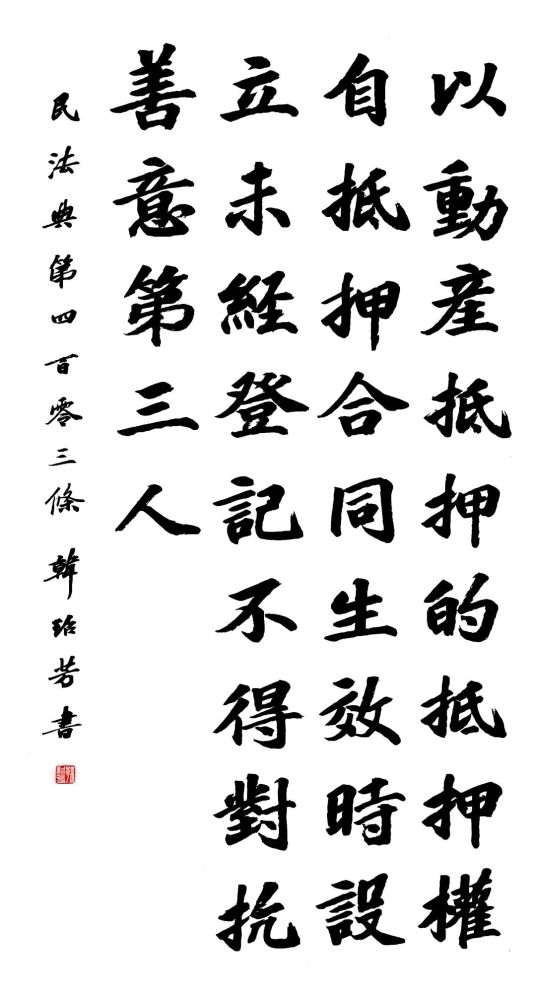 以動產抵押的抵押權
自抵押合同生效時設
立未經登記不得對抗
善意第三人
民法典第四百零三條 韓玿芳書